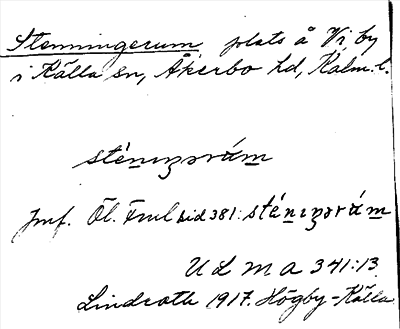 Stenningerum, plats å Vi by
i Källa sn, Åkerbo hd, Kalm. l.
sténıŋərúm
Jmf. Öl. Fml sid 381: sténıŋərúm
U L M A 341:13.
Lindroth 1917. Högby-Källa